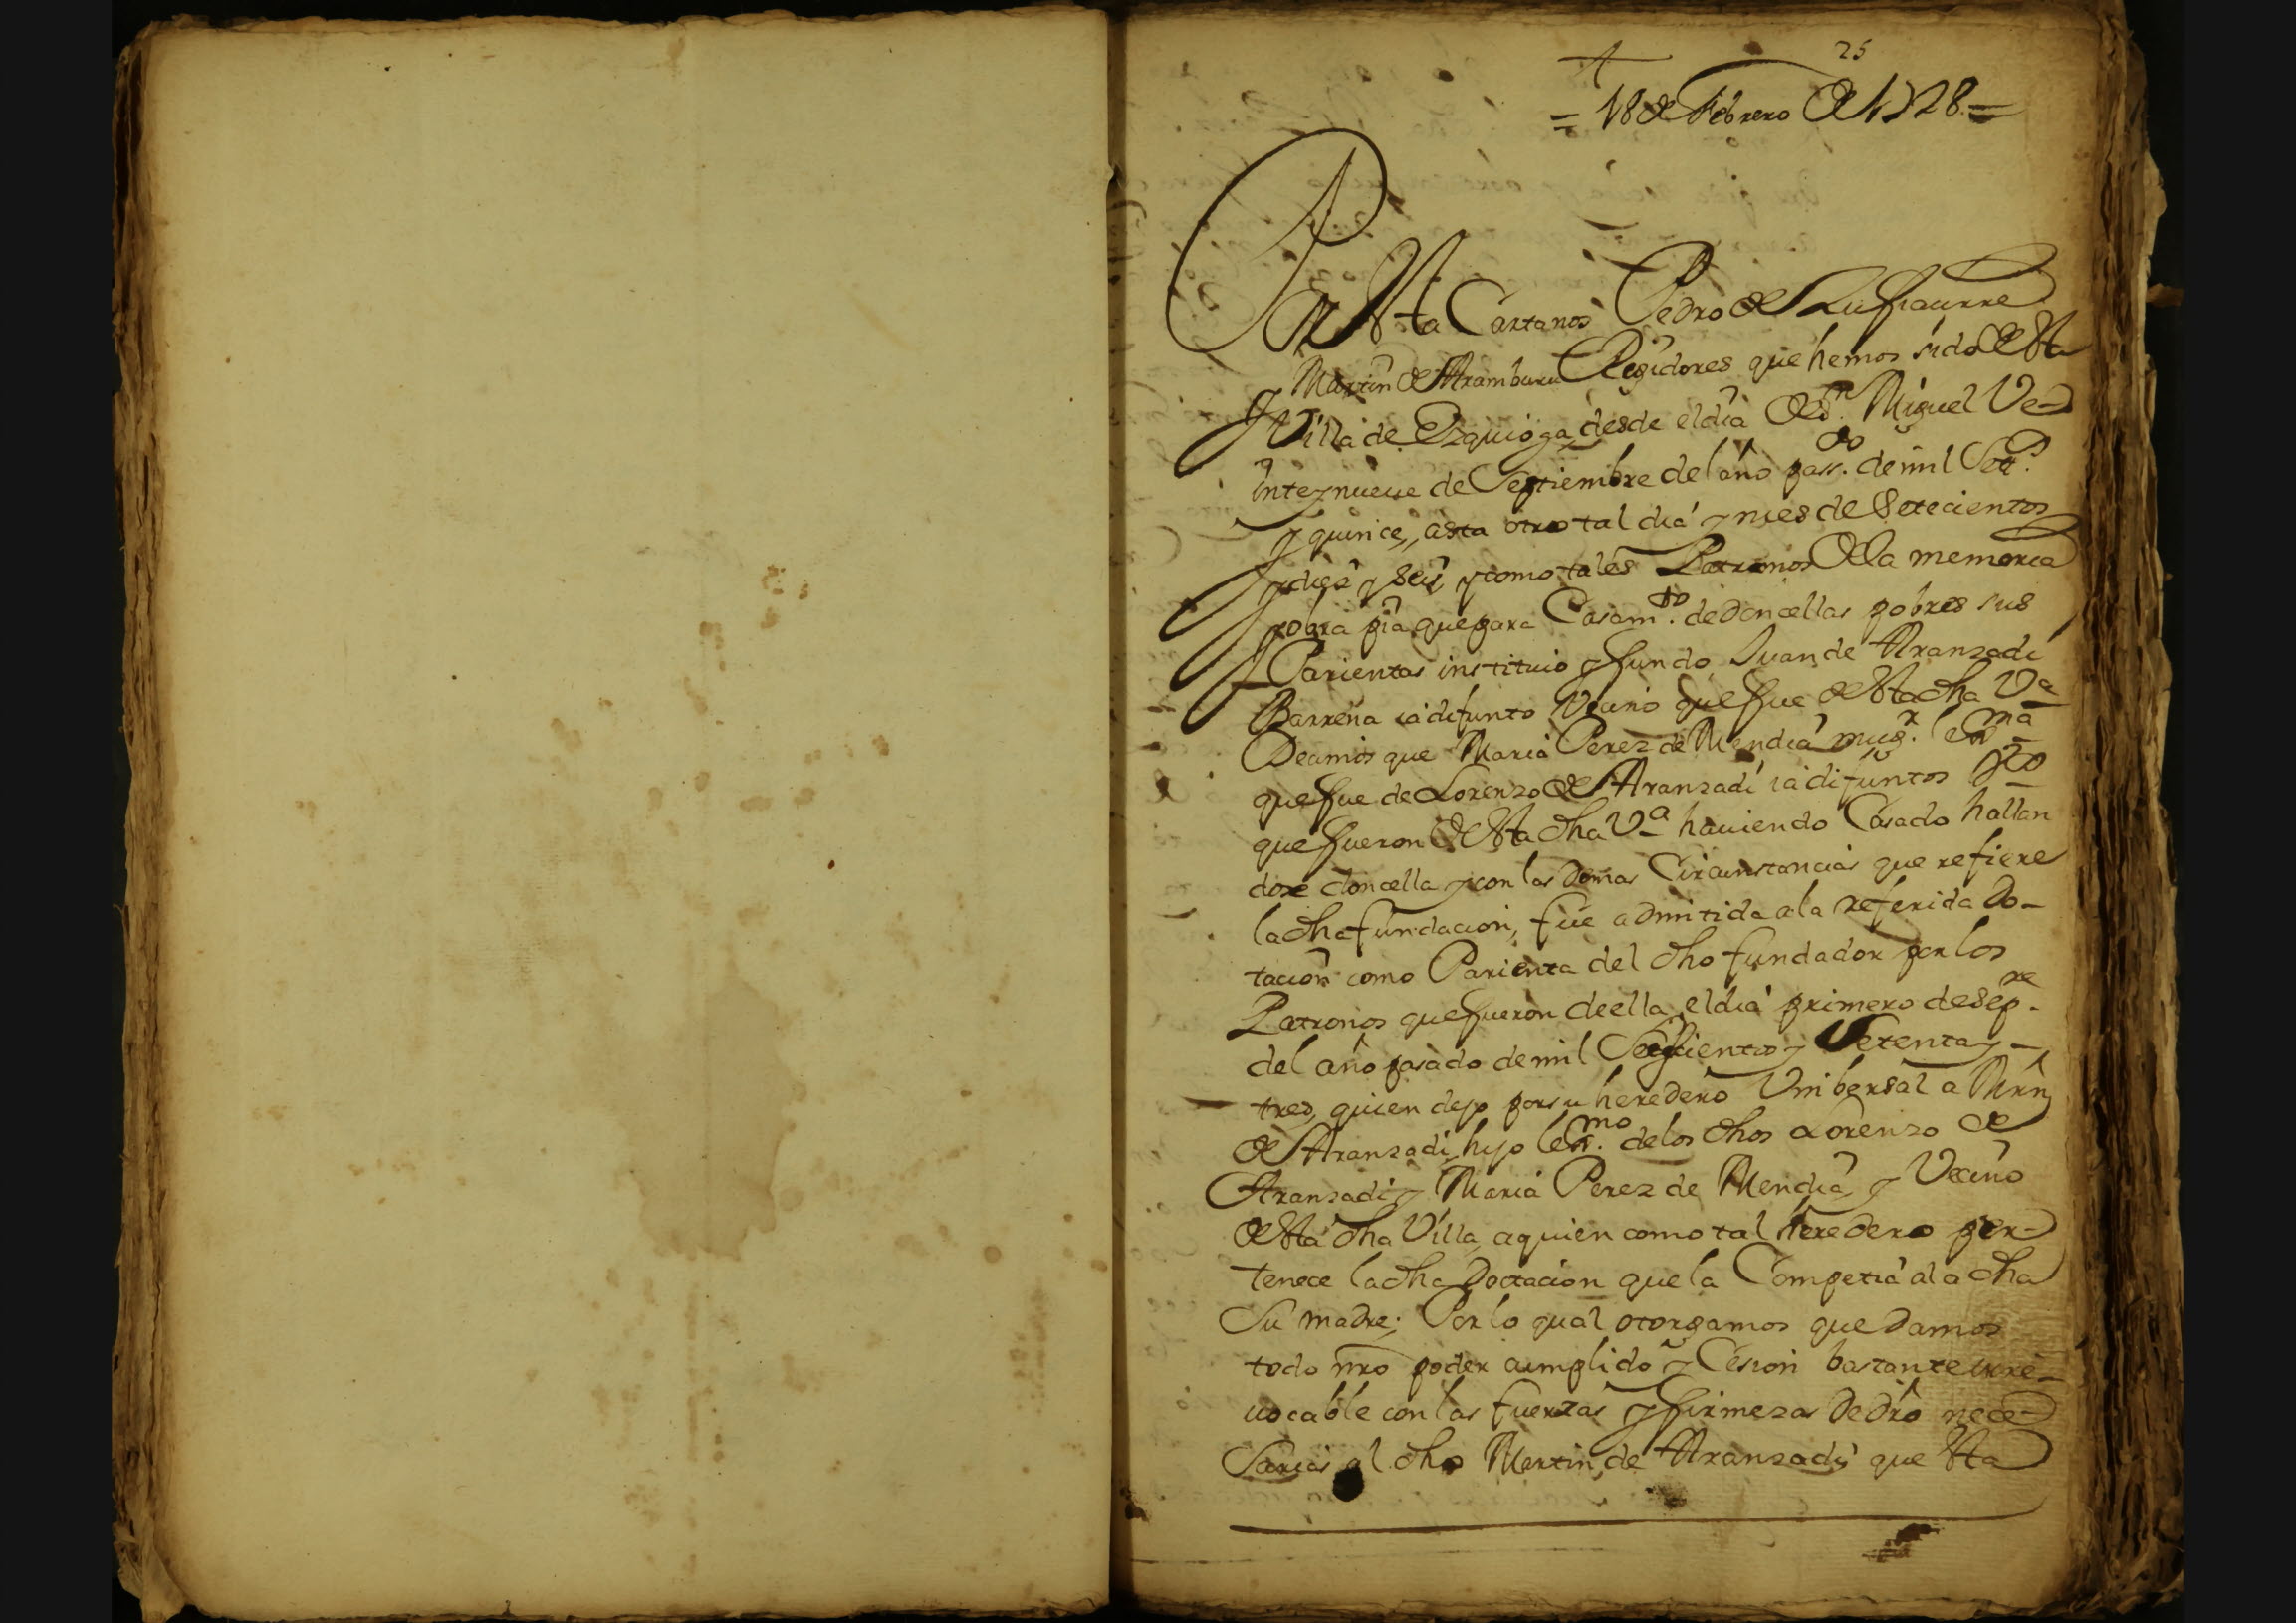 25
= 18 de Febrero de 1728 =
Por esta Carta nos Pedro de
y Martin de Aramburu Regidores que hemos sido de esta
Villa de Ezquioga, desde el dia de Sn. Miguel Ve-
inte y nueue de Septiembre del año pass.do de mil Sett.s
y quince, asta otro tal dia y mes de Setecientos
y diez y seis, y como tales Patronos de la memoria
y obra pia que para Casam.to de doncellas pobres sus
Parientas instituio y fundo Juan de Aranzadi
Barrena ia difunto Vecino que fue de esta dha V.a
Decimos que Maria Perez de Mendia mug.r lexma
que fue de Lorenzo de Aranzadi ia difuntos
que fueron de esta dha V.a hauiendo Casado hallan
dose doncella y con las demas Circunstancias que refiere
la dha fundacion, fue admitida a la referida Do-
tacion como Parienta del dho fundador por los
Patronos que fueron de ella, el dia primero de Sep.re
del año pasado de mil Seiscientos y Setenta y -
tres, quien dejo por su heredero Vnibersal a Mrn
de Aranzadi, hijo lex.mo de los dhos Lorenzo de
Aranzadi y Maria Perez de Mendia, y Vecino
de esta dha Villa, a quien como tal heredero per-
tenece la dha Doctacion que la Competia a la dha
Su madre; Por lo qual otorgamos que damos
todo nro poder cumplido y Cesion bastante irre-
uocable con las fuerzas y firmezas de dro nece-
Sarias al dho Martin de Aranzadi que esta